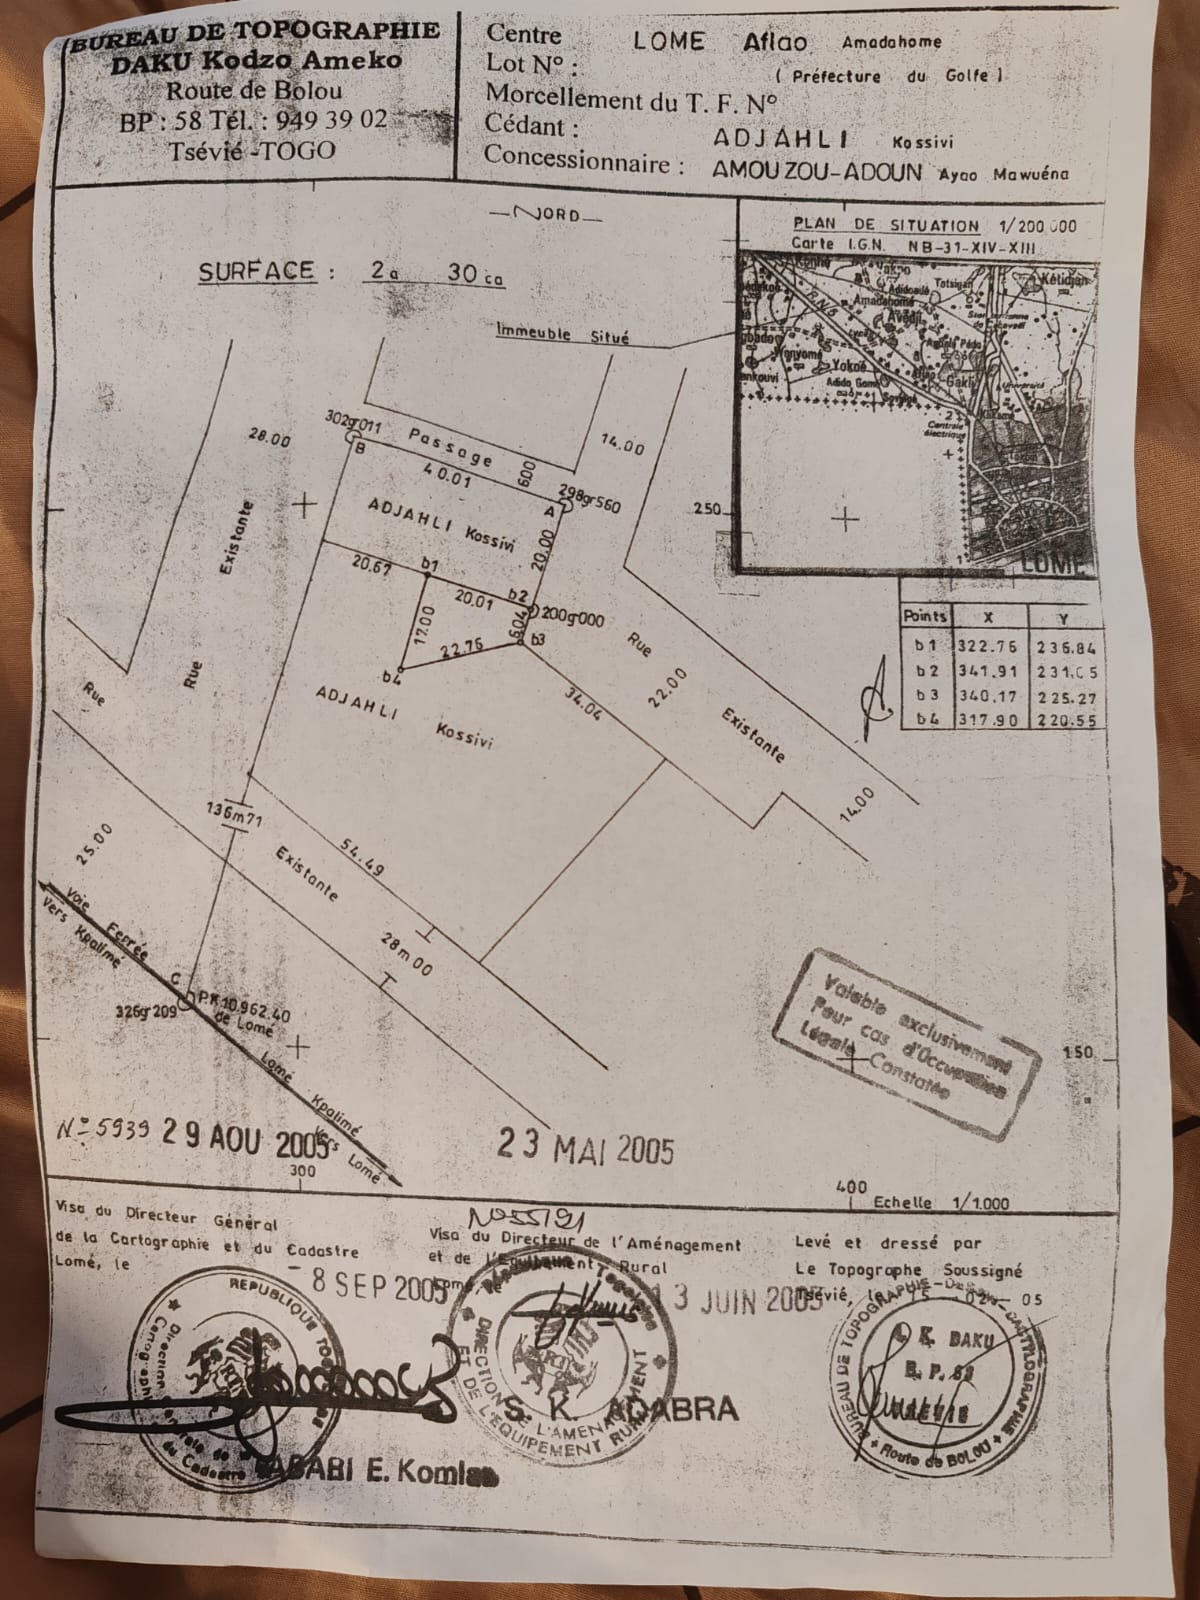 BUREAU DE TOPOGRAPHIE
DAKU Kodzo Ameko
Route de Bolou
BP : 58 Tél. : 949 39 02
Tsévié -TOGO
Centre LOME Aflao Amadahome
Lot N° : ( Préfecture du Golfe )
Morcellement du T. F. N°
Cédant : ADJAHLI Kossivi
Concessionnaire : AMOUZOU-ADOUN Ayao Mawuéna
NORD
SURFACE : 2a 30 ca
Immeuble Situé
PLAN DE SITUATION 1/200 000
Carte I.G.N. NB-31-XIV-XIII
Kétidjan
Totsigan
Adidoadé
Amadahomé
R.N.5
Avédji
Yokoé
Adido Gomé
Gakli
Centrale
électrique
LOME
302gr011
B
28.00
Passage
6.00
14.00
40.01
298gr560
A
Existante
ADJAHLI Kossivi
20.00
250
20.67
b1
20.01
b2
200gr000
17.00
6.04
b3
22.76
b4
Rue
Rue
Rue
22.00
34.04
Existante
14.00
ADJAHLI Kossivi
Points X Y
b1 322.76 236.84
b2 341.91 231.05
b3 340.17 225.27
b4 317.90 220.55
136m71
25.00
54.49
Existante
28m00
Voie Ferrée
Vers Kpalimé
C
326gr209
P.K 10.962.40
de Lomé
Lomé Kpalimé
Vers Lomé
Valable exclusivement
Pour cas d'Occupation
Légale Constatée
150
N° 5939 29 AOU 2005
23 MAI 2005
300
400
Echelle 1/1.000
Visa du Directeur Général
de la Cartographie et du Cadastre
Lomé, le
- 8 SEP 2005
Visa du Directeur de l'Aménagement
et de l'Equipement Rural
13 JUIN 2005
Levé et dressé par
Le Topographe Soussigné
Tsévié, le 15 - 02 - 05
REPUBLIQUE TOGOLAISE
du Cadastre
République Togolaise
DIRECTION DE L'AMENAGEMENT
ET DE L'EQUIPEMENT RURAL
S. K. ADABRA
E. Komlan
BUREAU DE TOPOGRAPHIE
K. DAKU
Route de BOLOU